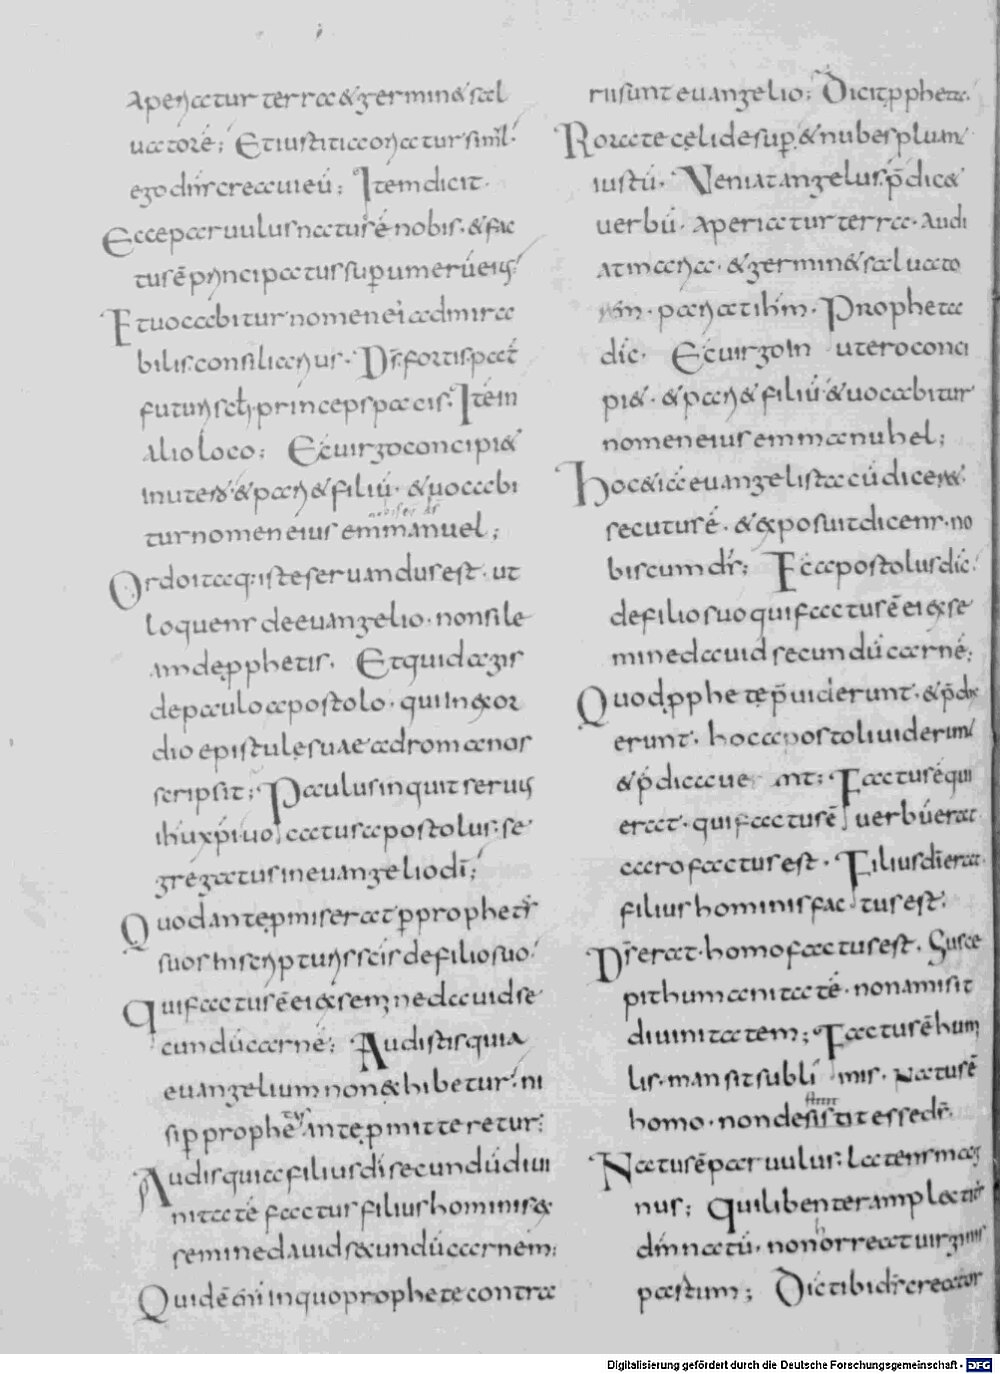 aperiatur terra & germin& sal
uatorē; Et iustitia oriatur simul·
ego dn̄s creaui eū; Item dicit·
Ecce paruulus natus ē nobis· & fac
tus ē principatus sup umerū eius;
Et uocabitur nomen ei admira
bilis· consiliarius· Ds̄ fortis· pat̄
futuri sc̄li· princeps pacis; Itē in
alio loco; Ecce uirgo concipi&
in uterū & pari& filiū· & uocabi
tur nomen eius emmanuel;
nobiscū ds̄
Ordo itaq; iste seruandus est· ut
loquens de euangelio· non sile
am de pphetis· Et quid agis
de paulo apostolo· qui in exor
dio epistulę suae ad romanos
scripsit; Paulus inquit seruus
ihū xp̄i uocatus apostolus· se
gregatus in euangelio dī;
Quod ante pmiserat p prophetas
suos in scripturis sc̄is de filio suo·
qui factus ē ei ex semine dauid se
cundū carnē; Audistis quia
euangelium non exhibetur· ni
si p prophetas ante pmitteretur;
Audis quia filius dī secundū diui
nitatē factus filius hominis ex
semine dauid secundū carnem;
Quid ē in quo prophete contra
rii sunt euangelio; Dicit ppheta·
Rorate cęli desup· & nubes pluant
iustū· Veniat angelus· p̄dic&
uerbū· aperiatur terra· audi
at maria· & germin& saluato
rem· pariat ihm̄· Propheta
dic̄· Ecce uirgo in utero conci
pi&· & pari& filiū & uocabitur
nomen eius emmanuhel;
Hoc & iā euangelista cū dicer&
secutus ē· & exposuit dicens· no
biscum ds̄; Et apostolus dic̄·
de filio suo qui factus ē ei ex se
mine dauid secundū carnē;
Quod pphete p̄uiderunt· & p̄dix
erunt· hoc apostoli uiderunt
& p̄dicauerunt; Factus ē qui
erat· qui factus ē uerbū erat
caro factus est· Filius dī erat
filius hominis factus est·
Ds̄ erat· homo factus est· Susce
pit humanitatē· non amisit
diuinitatem; Factus ē hum
lis· mansit sublimis· Natus ē
homo· non desistit esse ds̄·
Natus ē paruulus· latens mag
nus; Qui libenter amplectit̄
dm̄ natū· non horreat uirginis
partum; Dic̄ tibi ds̄ creator
Digitalisierung gefördert durch die Deutsche Forschungsgemeinschaft - DFG